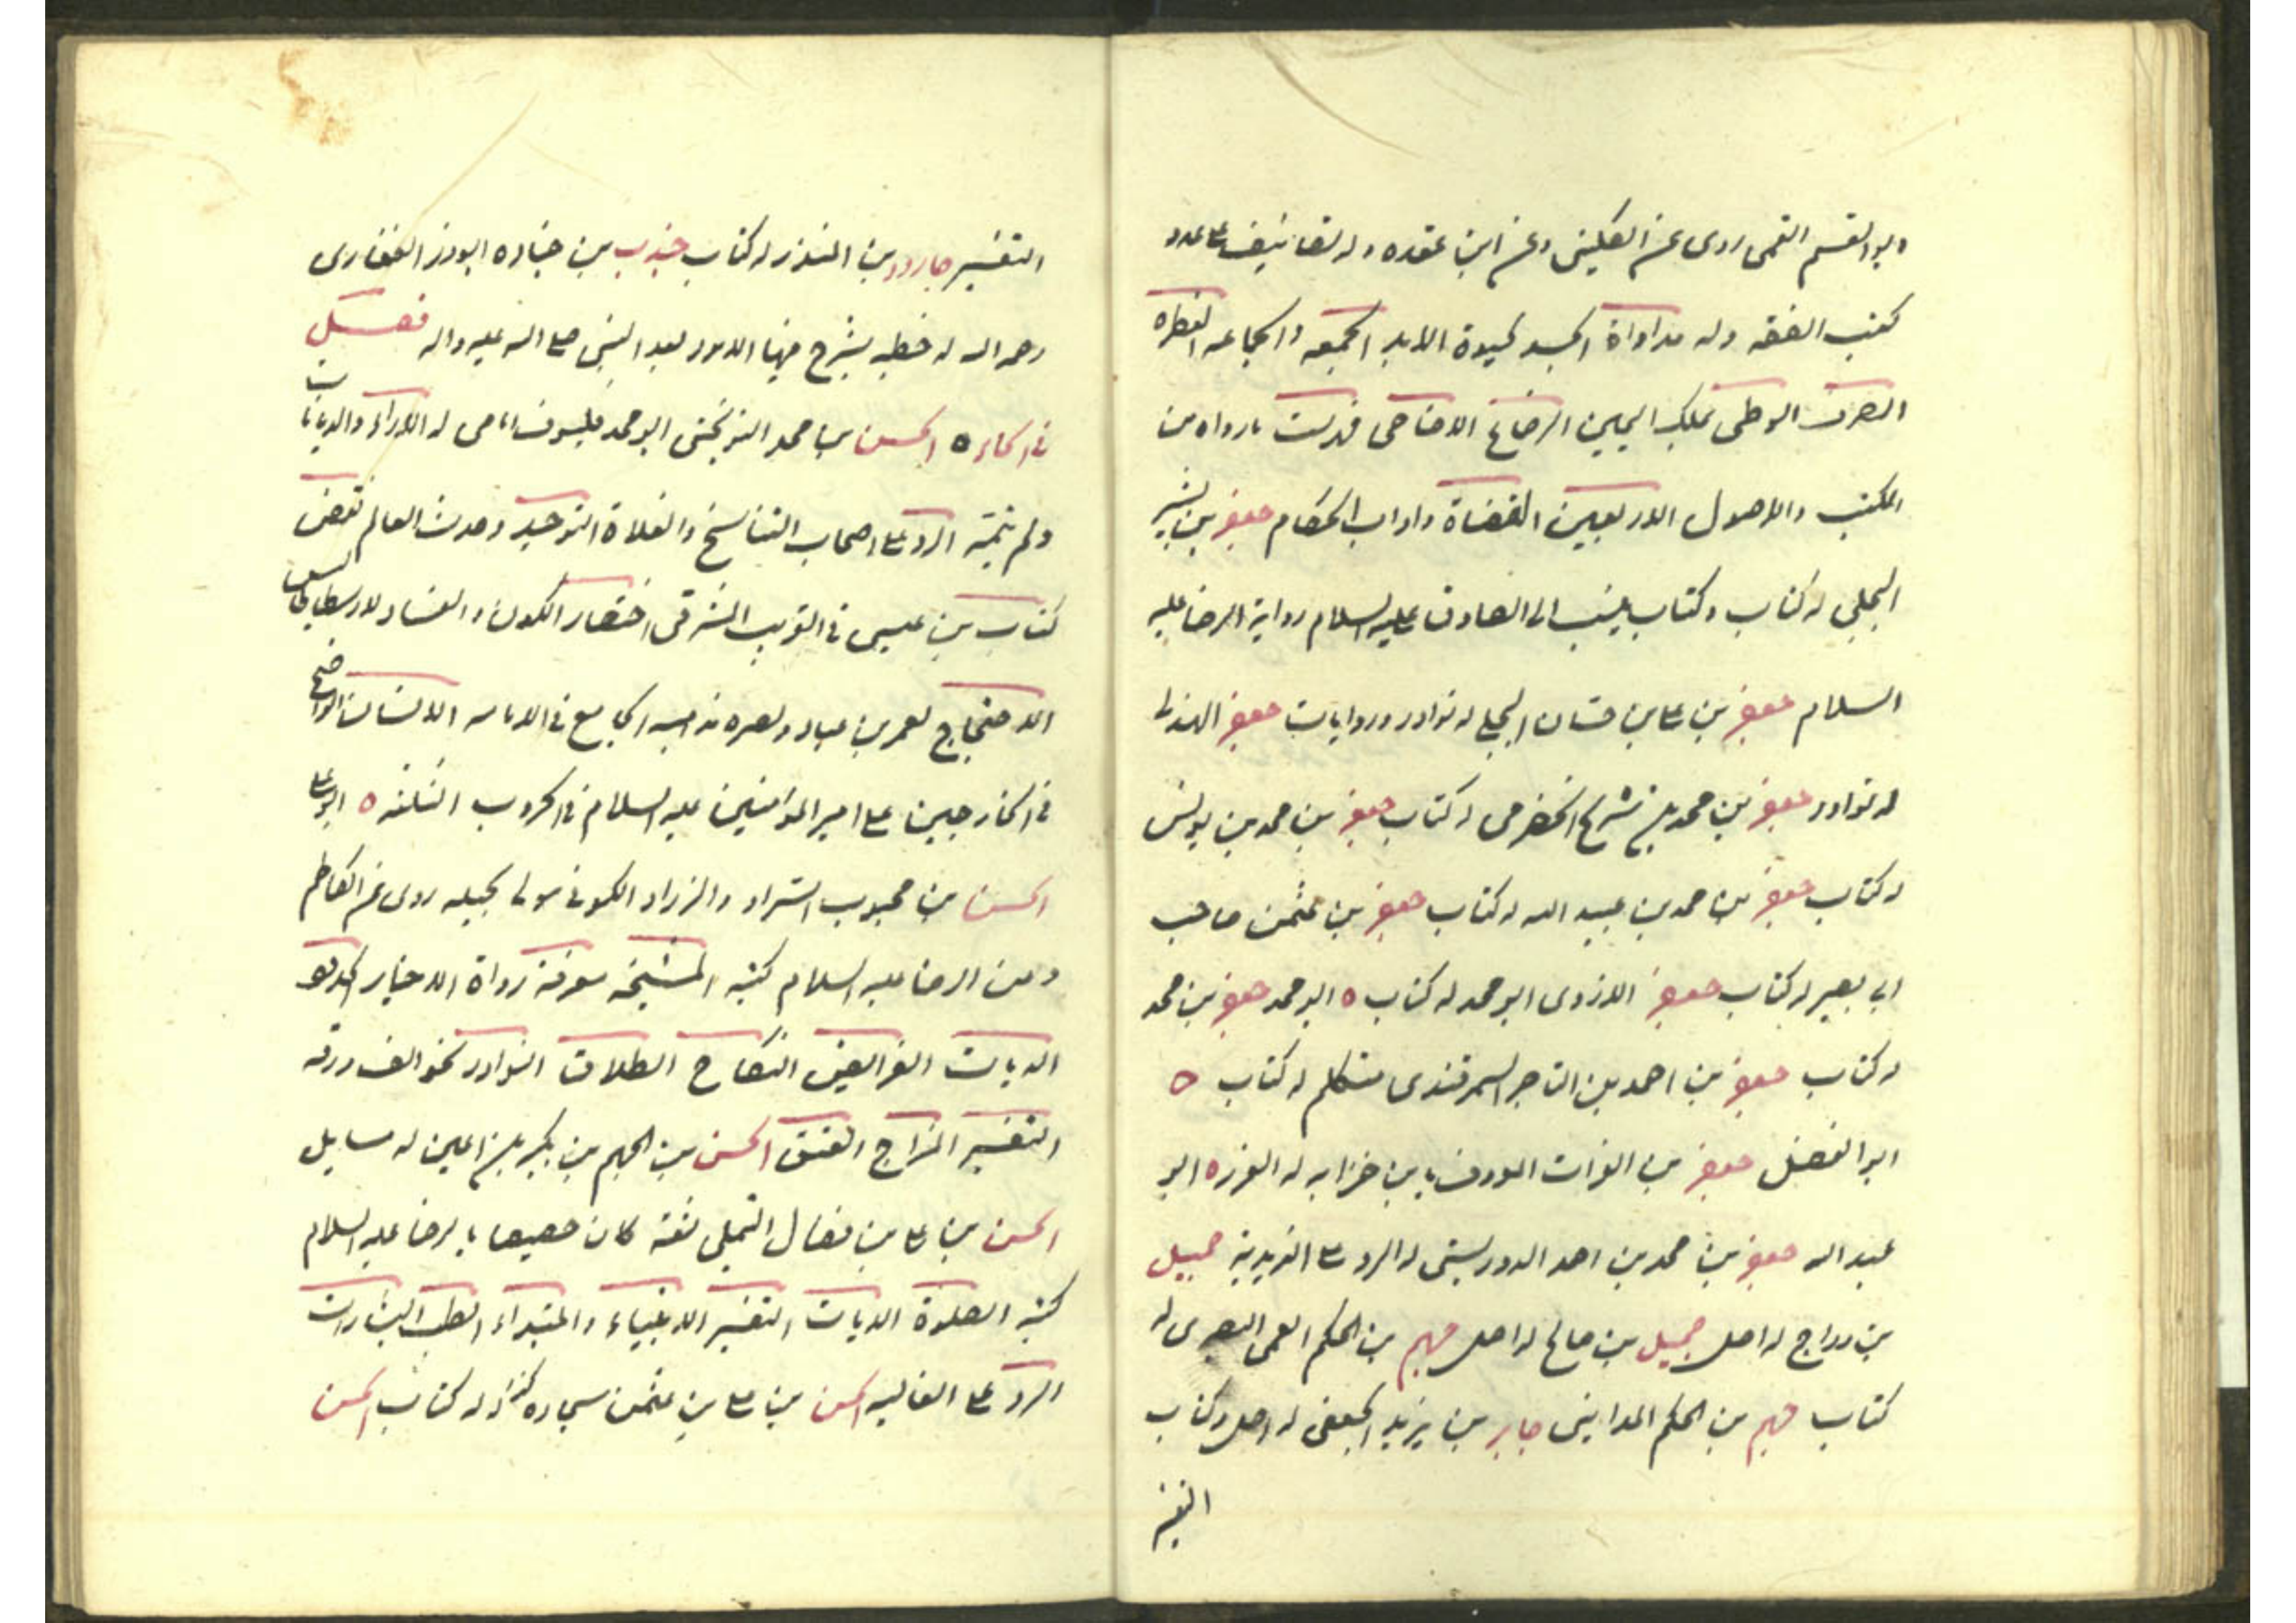 ابو القسم القمى روى عن الكلينى وعن ابن عقده وله تصانيف على عدد
كتب الفقه وله مداواة الجسد لحيوة الابد الجمعه والجماعه الفطره
الصرف الوطى بملك اليمين الرضاع الاضاحى فهرست مارواه من
الكتب والاصول الاربعين القضاة واداب الحكام جعفر بن بشير
البجلى له كتاب وكتاب ينسب الى الصادق عليه السلام رواية الرضا عليه
السلام جعفر بن على بن حسان البجلى له نوادر وروايات جعفر الهذلى
له نوادر جعفر بن محمد بن شريح الحضرمى له كتاب جعفر بن محمد بن يونس
له كتاب جعفر بن محمد بن عبيد الله له كتاب جعفر بن عثمن صاحب
ابى بصير له كتاب جعفر الازدى ابو محمد له كتاب ه ابو محمد جعفر بن محمد
له كتاب جعفر بن احمد بن التاجر السمرقندى متكلم له كتاب ه
ابو الفضل جعفر بن الفرات المعروف بابن خزابه له الغرر ه ابو
عبد الله جعفر بن محمد بن احمد الدوريستى له الرد على الزيدية جميل
بن دراج له اصل جميل بن صالح له اصل جهم بن الحكم القمى البصرى له
كتاب جهم بن الحكم المداينى جابر بن يزيد الجعفى له اصل وكتاب
التفسير
التفسير جارود بن المنذر له كتاب جندب بن جناده ابوذر الغفارى
رحمه الله له خطبه يشرح فيها الامور بعد النبى صلى الله عليه واله فصل
فى الحاء ه الحسن بن محمد النوبختى ابو محمد فيلسوف امامى له الاراء والديانات
ولم يتمه الرد على اصحاب التناسخ والغلاة التوحيد وحدث العالم نقض
كتاب بن عيسى فى الغريب المشرقى اختصار الكون والفساد لارسطاطاليس
الاحتجاج لعمر بن عباد ونصره مذهبه الجامع فى الامامه الانسان الواضح
فى الخارجين على امير المؤمنين عليه السلام فى الحروب الثلثه ه ابو على
الحسن بن محبوب السراد والزراد الكوفى مولى بجيله روى عن الكاظم
وعن الرضا عليه السلام كتبه المشيخه معرفة رواة الاخبار الحدود
الديات الفرايض النكاح الطلاق النوادر نحو الف ورقه
التفسير المزاج العتق الحسن بن الجهم بن بكير بن اعين له مسايل
الحسن بن على بن فضال التيملى ثقة كان خصيصا بالرضا عليه السلام
كتبه الصلوة الديات التفسير الانبياء والمبتداء الطب البشارات
الرد على الغاليه الحسن بن على بن عثمن سجاده له كتاب الحسن